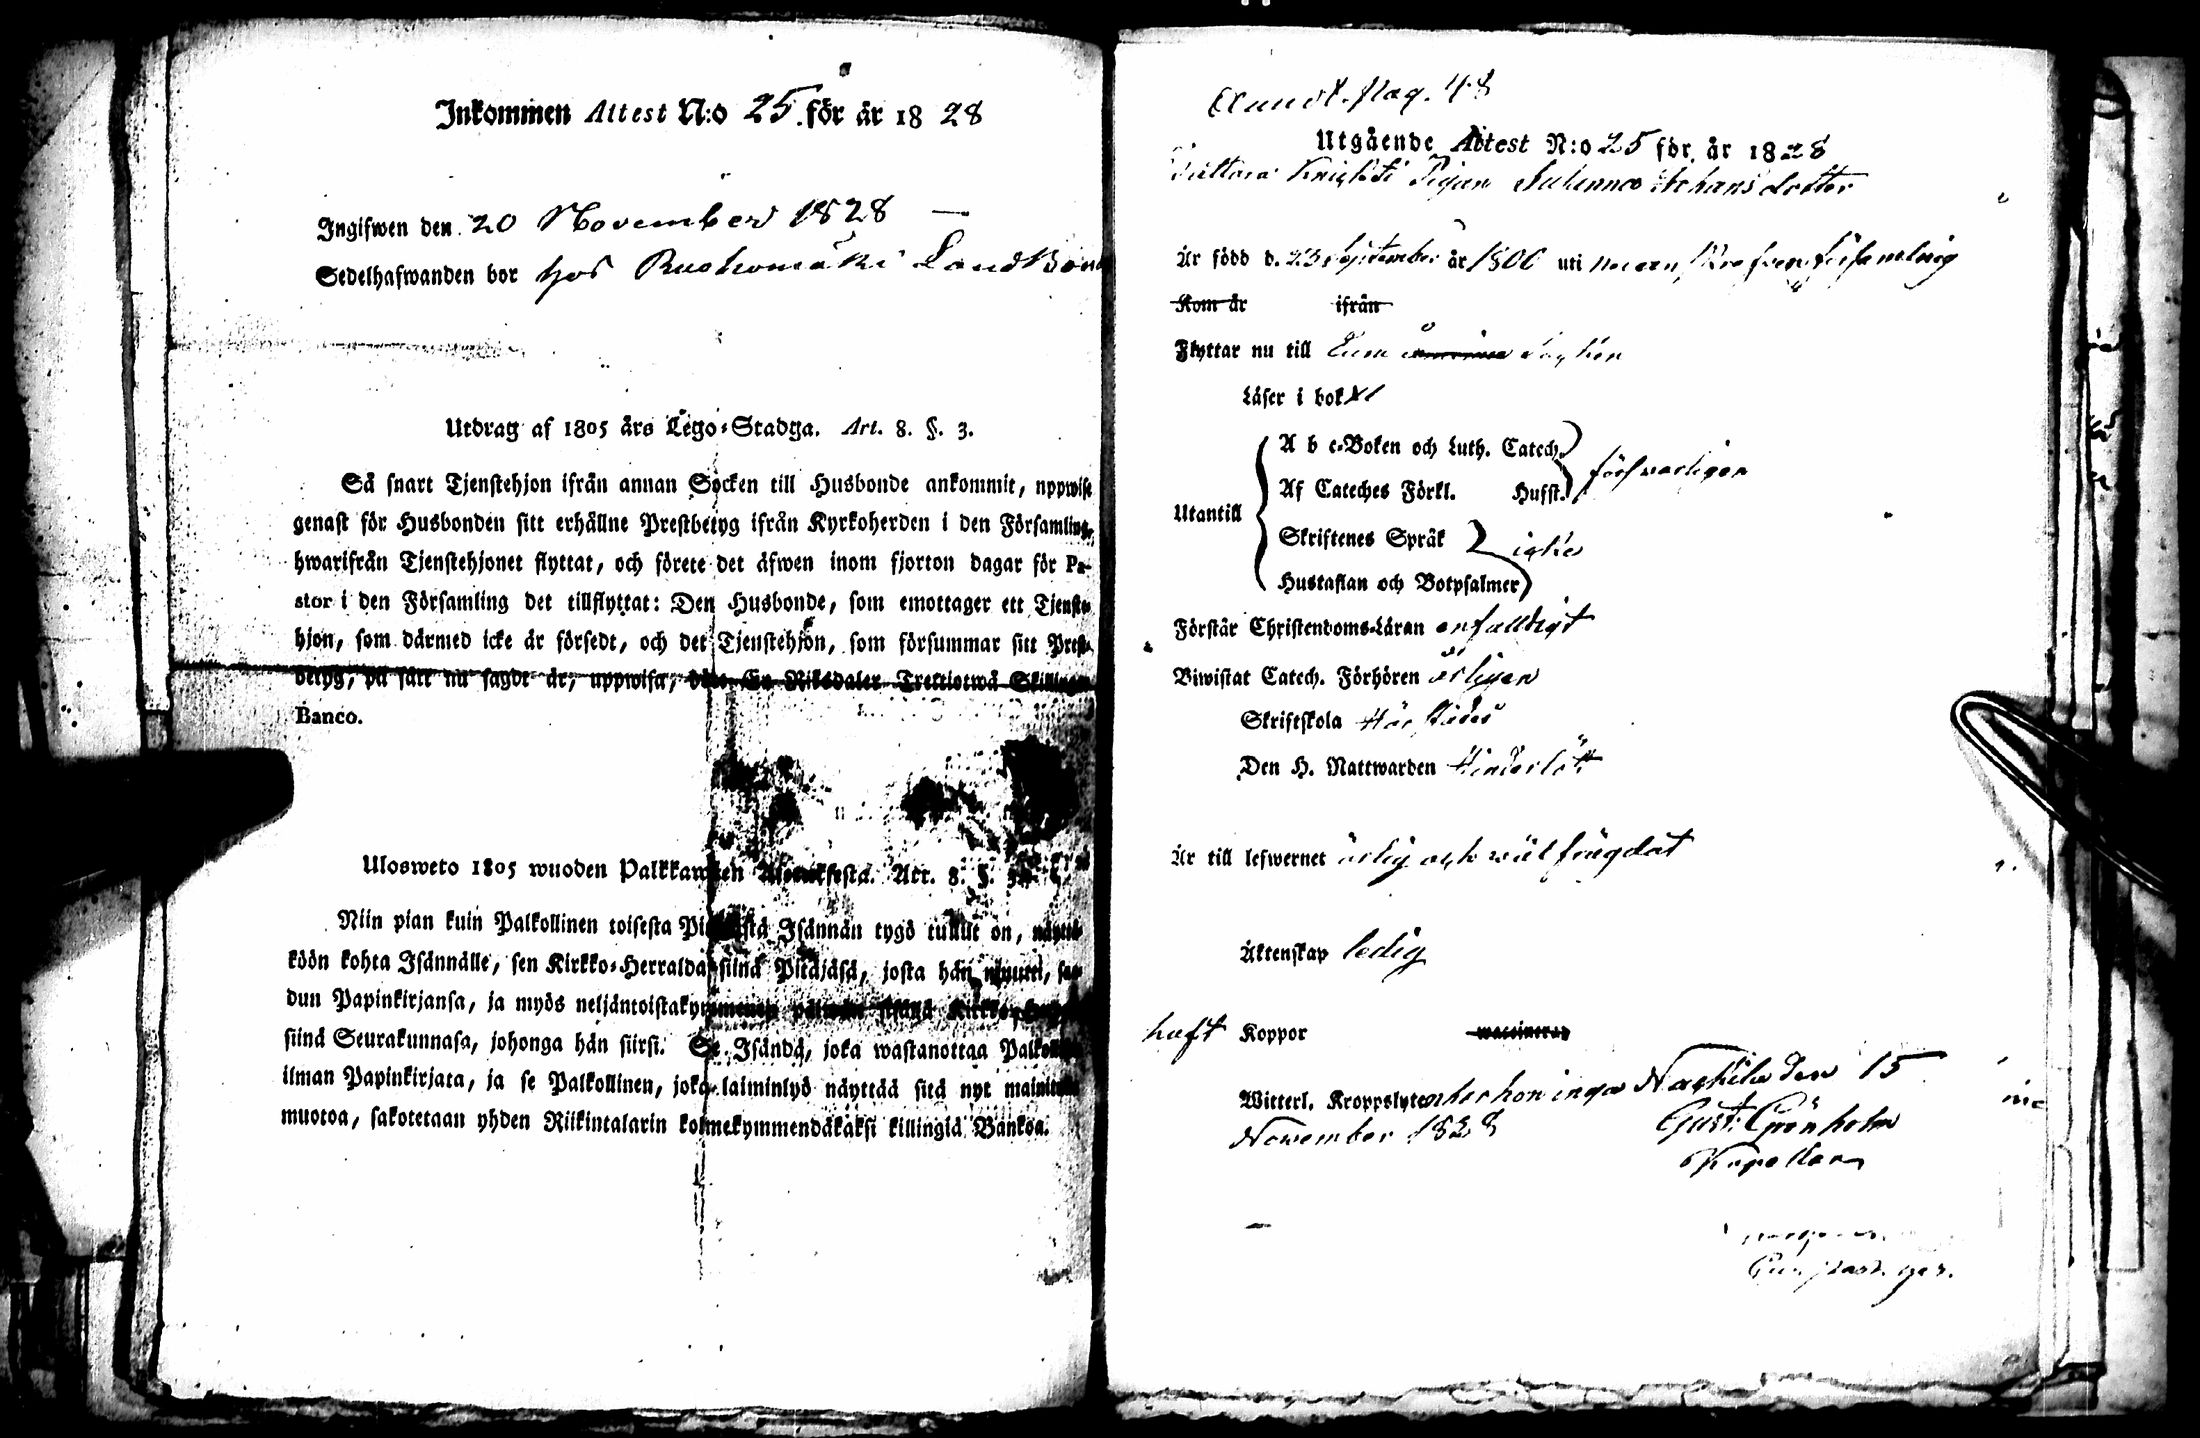 Inkommen Attest N:o 25 för år 1828
Ingifwen den 20 November 1828 —
Sedelhafwanden bor hos Ruohomäki
Utdrag af 1805 års Lego-Stadga. Art. 8. §. 3.
Så snart Tjenstehjon ifrån annan Socken till Husbonde ankommit, uppwise
genast för Husbonden sitt erhållne Prestbetyg ifrån Kyrkoherden i den Församling,
hwarifrån Tjenstehjonet flyttat, och förete det äfwen inom fjorton dagar för Pa-
stor i den Församling det tillflyttat: Den Husbonde, som emottager ett Tjenste-
hjon, som därmed icke är försedt, och det Tjenstehjon, som försummar sitt Prest-
betyg, på sätt nu sagdt är, uppwisa, böte En Riksdaler Trettiotwå Skillingar
Banco.
Ulosweto 1805 wuoden Palkkawäen Art. 8. §.
Niin pian kuin Palkollinen toisesta Pitäjästä Isännän tygö tullut on, näyttä-
köön kohta Isännälle, sen Kirkko-Herralda siinä Pitäjäsä, josta hän muutti, saa-
dun Papinkirjansa, ja myös neljäntoistakymmenen päiwän sisällä Kirkko-
siinä Seurakunnasa, johonga hän siirsi. Se Isändä, joka wastanottaa Palkollisen
ilman Papinkirjata, ja se Palkollinen, joka laiminlyö näyttää sitä nyt mainitulla
muotoa, sakotetaan yhden Riikintalarin kolmekymmendäkaksi killingiä Bankoa.
48
Utgående Attest N:o 25 för år 1828
Pigan Johansdotter
Är född d. 23 September år 1800 uti församling
Kom år ifrån
Flyttar nu till Socken
Läser i bok
A b c-Boken och Luth. Catech.
Af Cateches Förkl. Husst. förswarligen
Utantill
Skriftenes Språk icke
Hustaflan och Botpsalmer
Förstår Christendoms-Läran enfalldigt
Biwistat Catech. Förhören årligen
Skriftskola Härstädes
Den H. Nattwarden
Är till lefwernet ärlig och wälfrägdat
Äktenskap ledig
haft Koppor waccinerad
Witterl. Kroppslyten har hon inga Naskila den 15
November 1828 Gust. Grönholm
Kapellan